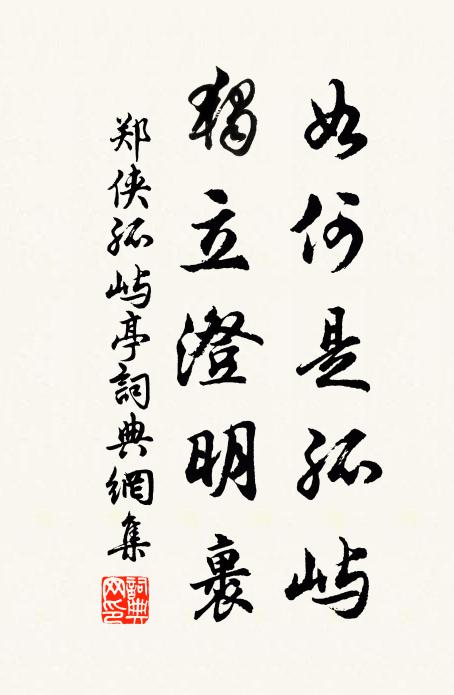 如何是孤屿
獨立澄明裹
郑侠孤屿亭詞典網集
詞典网印